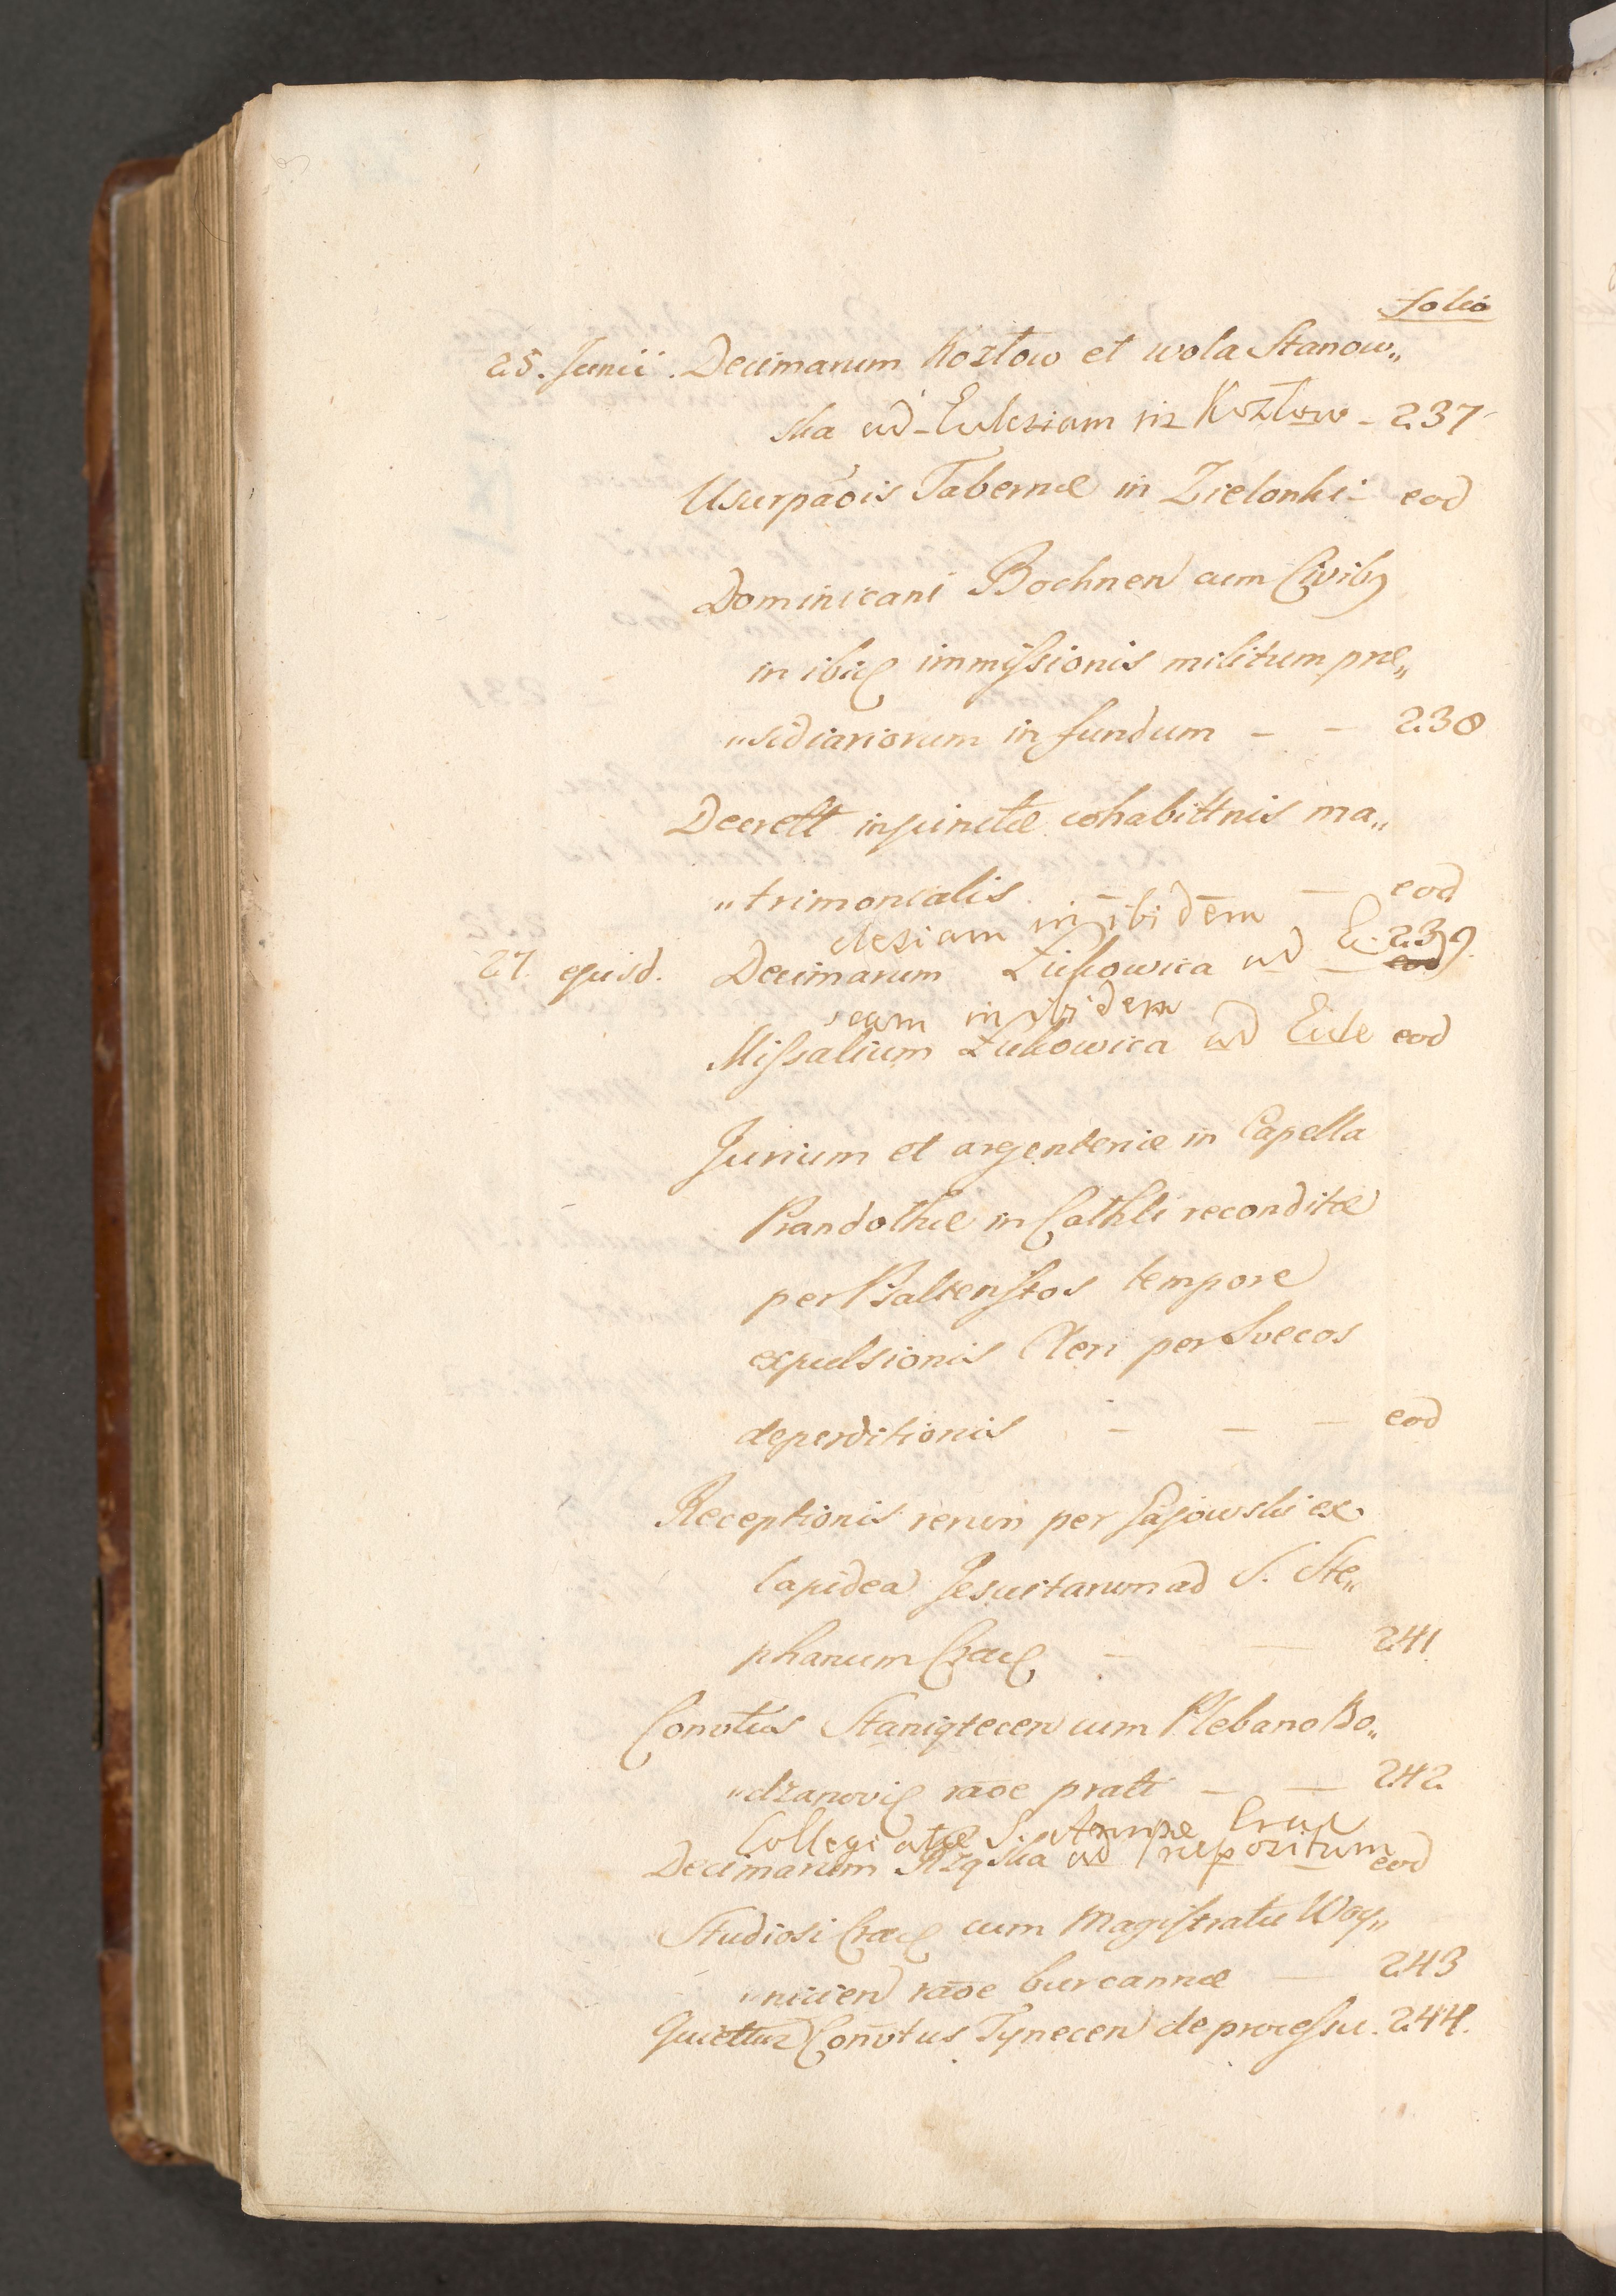 folio
25. Junii. Decimarum Kozłow et wola Stanow„
ska ad Ecclesiam in Kozłow - 237
Usurpaõis Tabernæ in Zielonki - eod
Dominicani Bochnen cum Civibq
in ibiq immissionis militum præ„
„sidiariorum in fundum - - 238
Decrett injunctæ cohabittnis ma„
„trimonialis - - eod
clesiam in ibidem
27. ejusd. Decimarum Łukowica ad Ec- 239.
eod
seam in ibidem
Missalium Łukowica ad Eccle eod
Jurium et argenteriæ in Capella
Prandothæ in Cathli reconditæ
per Psalteristos tempore
expulsionis Cleri per Svecos
deperditionis - - - eod
Receptionis rerum per Gajowski ex
lapidea Jesuitarum ad S. Ste„
phanum Cracq - - 241
Convtus Staniątecen cum Plebano Bo„
„dzanoviq raõe prati - - 242
Collegiatæ S. Annæ Crac
Decimarum Rząska ad Præpositum eod
Studiosi Cracq cum Magistratu Woy„
„nicien raõe burcannæ - 243
Quiettur Convtus Tynecen de processu. 244.